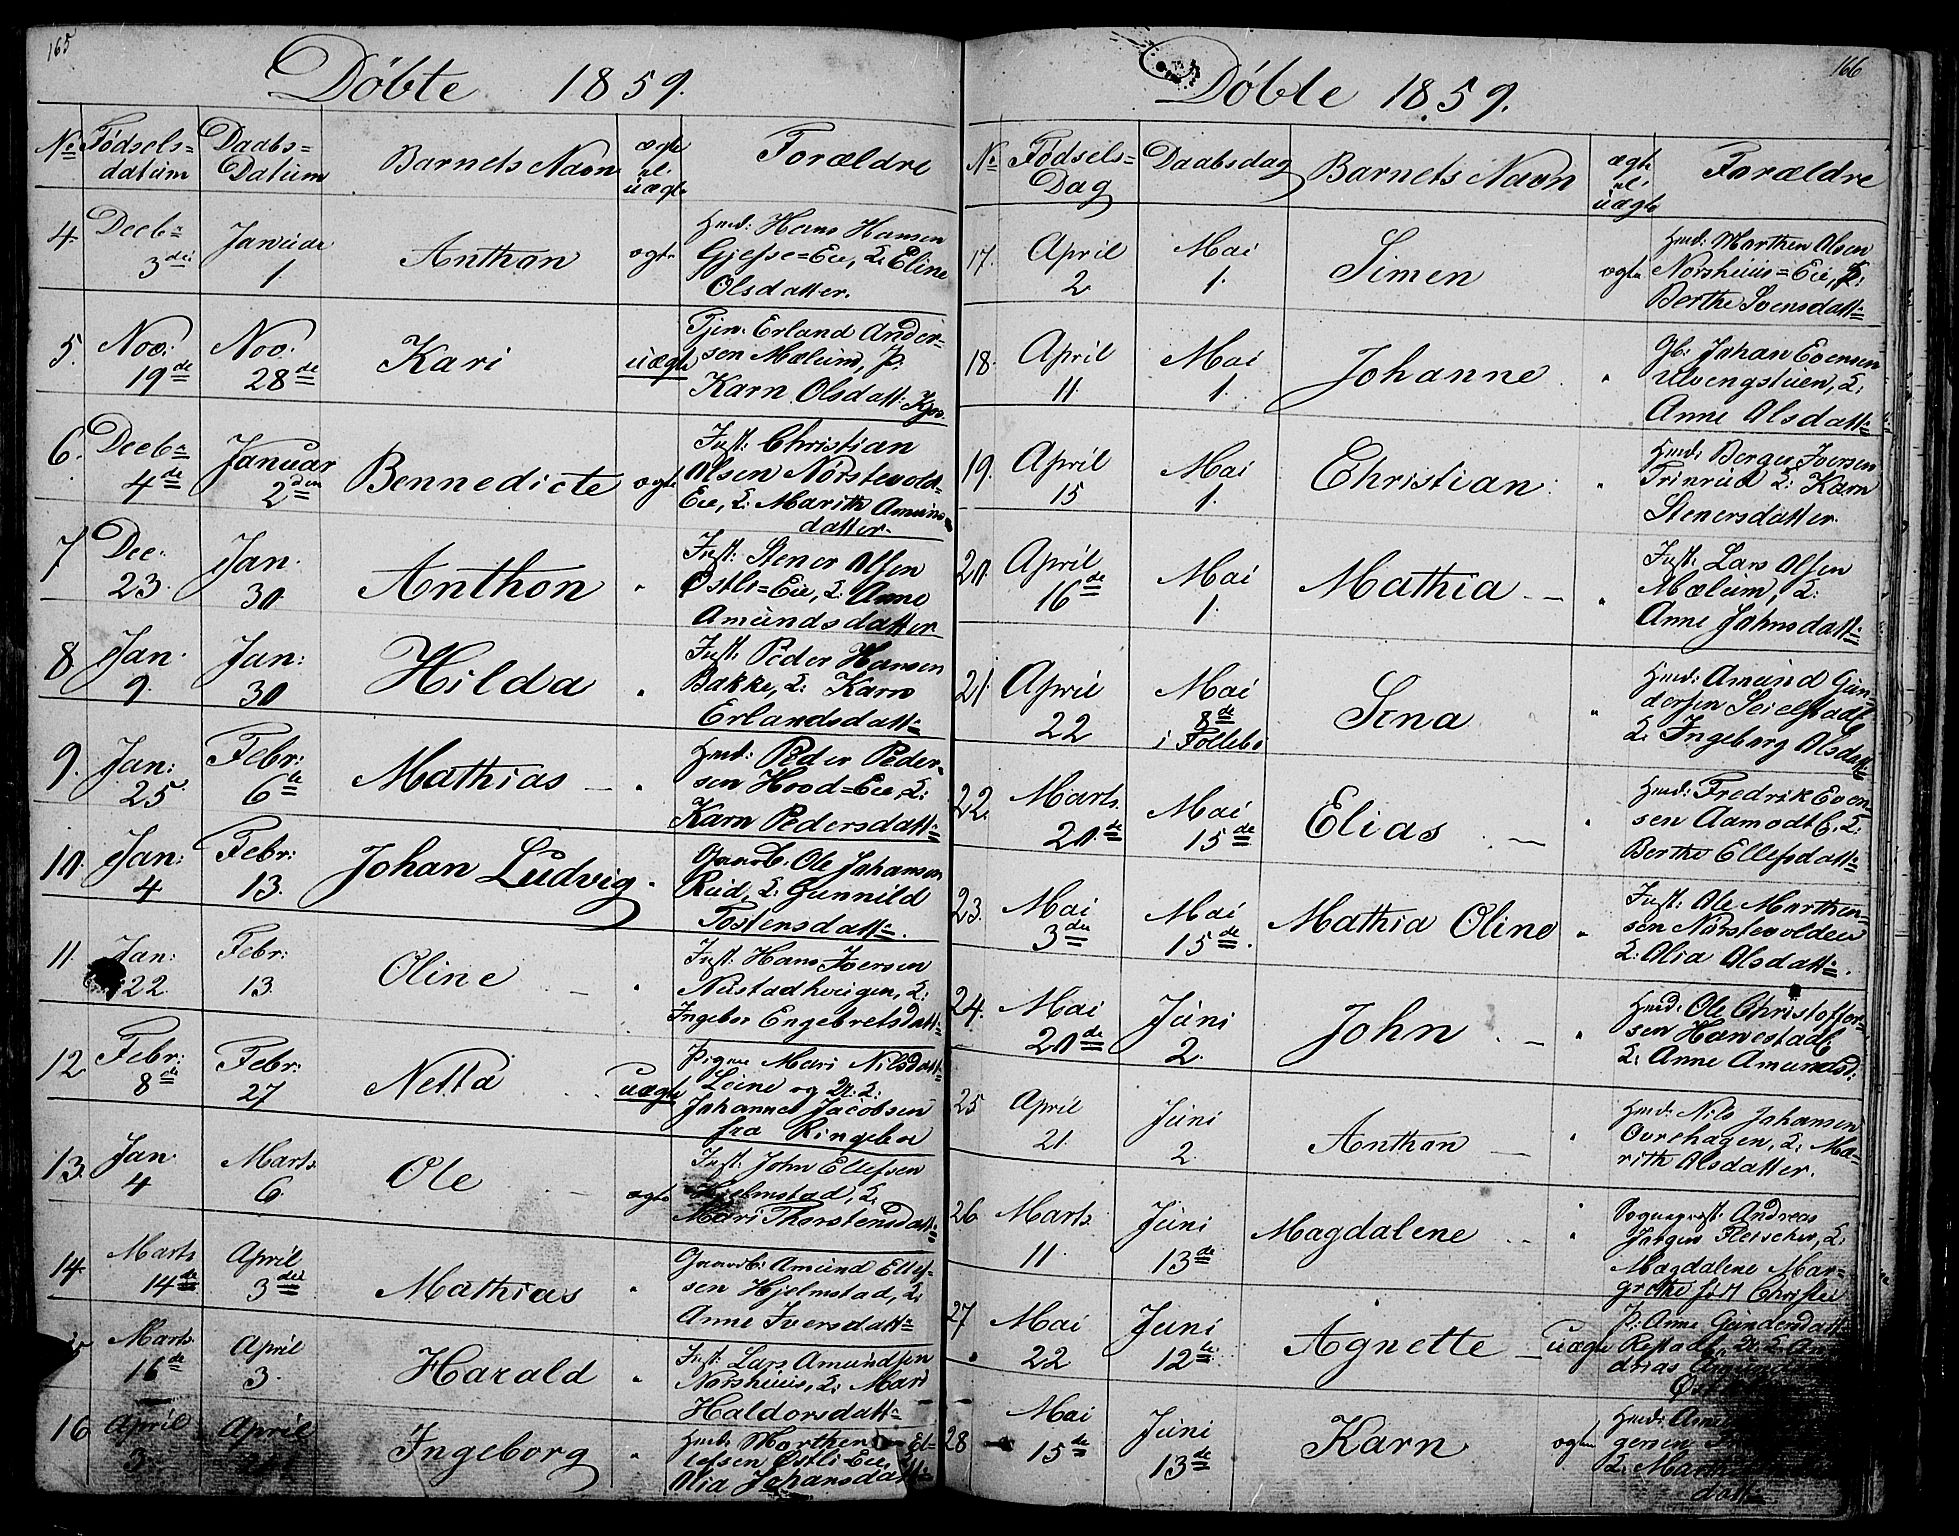 165
Døbte 1859.
No Fødsels= datum Daabs= Datum Barnets Navn ægte el. uægte Forældre
4. Decb. 3de Januar 1 Anthon ægte Hmd: Hans Hansen
Gjefse=Eie, &: Eline
Olsdatter.
5. Nov. 19de Nov. 28de Kari uægte Tjen: Erland Ander-
sen Mælum, p:
Karn Olsdatt:
6. Decb. 4de Januar 2den Bennedicte ægte Inst: Christian
Olsen Nørstevold=
Eie, &: Marith Amun=
datter.
7 Dec. 23. Jan. 30. Anthon " Inst: Stener Olsen
Østli=Eie, &: Anne
Amundsdatter
8 Jan. 9. Jan: 30 Hilda " Inst: Peder Hansen
Bakke, &: Karn
Erlandsdatt:
9. Jan: 25 Febr: 6te Mathias — " Hmd: Peder Peder-
sen Hood=Eie, &:
Karn Pedersdatt:
10. Jan: 4 Febr: 13. Johan Ludvig. Gaardb. Ole Johansen
Rud, &: Gunnild
Tostensdatt:
11. Jan: 22 Febr: 13. Oline — " Inst: Hans Iversen
Nustadhougen, &:
Ingebor Engebretsdatt:
12 Febr: 8de Febr: 27 Netta uægte Pigen Mari Nilsdatt:
Loine og
Johannes Jacobsen
fra Ringeboe
13. Jan. 4 Marts 6. Ole — ægte Inst: John Ellefsen
Hjelmstad, &:
Mari Thorstensdatt:
14. Marts 14de April 3de Mathias " Gaardb: Amund Ellef-
sen Hjelmstad, &:
Anne Iversdatt:
Marts 16de April 3. Harald " Inst: Lars Amundsen
Norshuus, &: Mari
Haldorsdatt:
16 April 3 April Ingeborg " Hmd: Morthen El-
lefsen Østli Eie, &:
Olia Johansdatt:
166
Døbte 1859.
No Fødsels= Dag Daabsdag Barnets Navn ægte el. uægte Forældre
17. April 2 Mai 1. Simen ægte Hmd: Morthen Olsen
Norshuus=Eie, &:
Berthe Svensdatt:
18. April 11 Mai 1. Johanne " Gb: Johan Evensen
Ulvengstuen, &:
Anne Olsdatt:
19. April 15 Mai 1. Christian " Hmd: Berger Iversen
Trinrud &: Karn
Stenersdatter.
20. April 16de Mai 1. Mathia — " Inst: Lars Olsen
Mælum, &:
Anne Johnsdatt:
21. April 22 Mai 8de i Follebo Sina " Hmd: Amund Gun-
dersen Seielstad
&: Ingeborg Olsdatt:
22. Marts 20de Mai 15de Elias — " Hmd: Fredrik Even-
sen Aamodt E. &:
Berthe Ellefsdatt:
23. Mai 3die Mai 15de. Mathia Oline " Inst: Ole Marthen-
sen Nørstevolden
&: Olia Olsdatt:
24. Mai 20de Juni 2. John — " Hmd: Ole Christoffer-
sen Hanestad
&: Anne Amundsd:
25 April 21. Juni 2. Anthon — " Hmd: Nils Johansen
Ovrehagen, &: Ma-
rith Olsdatter.
26 Marts 11. Juni 13de Magdalene " Sogneprest: Andreas
Jørgen Fleischer, &:
Magdalene Mar-
grethe født Christie
27 Mai 22 Juni 12te Agnette — uægte P: Anne Gundersdatt:
drias
28 Mai 15de Juni 13de Karn ægte Hmd:
gersen
&:
datt: